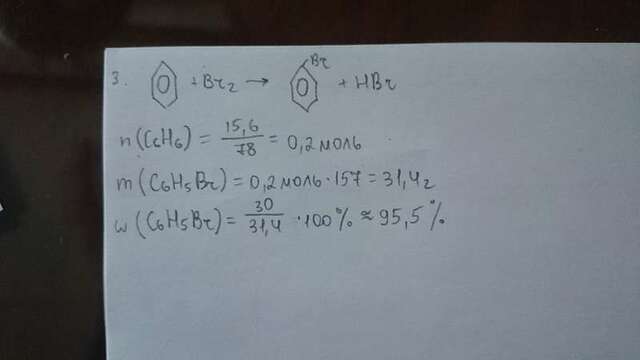 3. + Br2 → Br + HBr
n(C6H6) = 15,6/78 = 0,2 моль
m(C6H5Br) = 0,2 моль · 157 = 31,4 г
w(C6H5Br) = 30/31,4 · 100% ≈ 95,5%